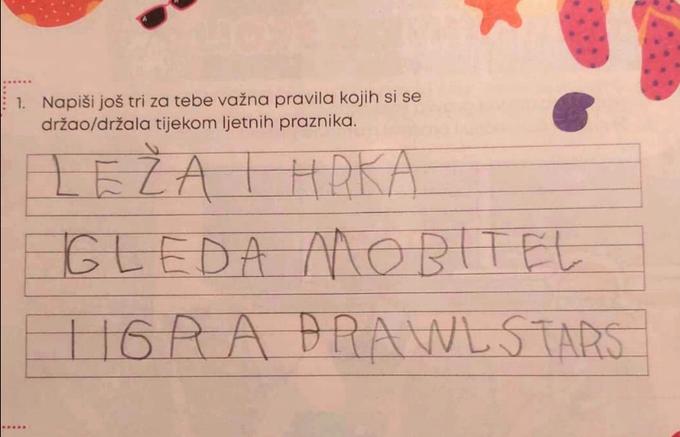 1. Napiši još tri za tebe važna pravila kojih si se
držao/držala tijekom ljetnih praznika.
LEŽA I HRKA
GLEDA MOBITEL
I IGRA BRAWLSTARS